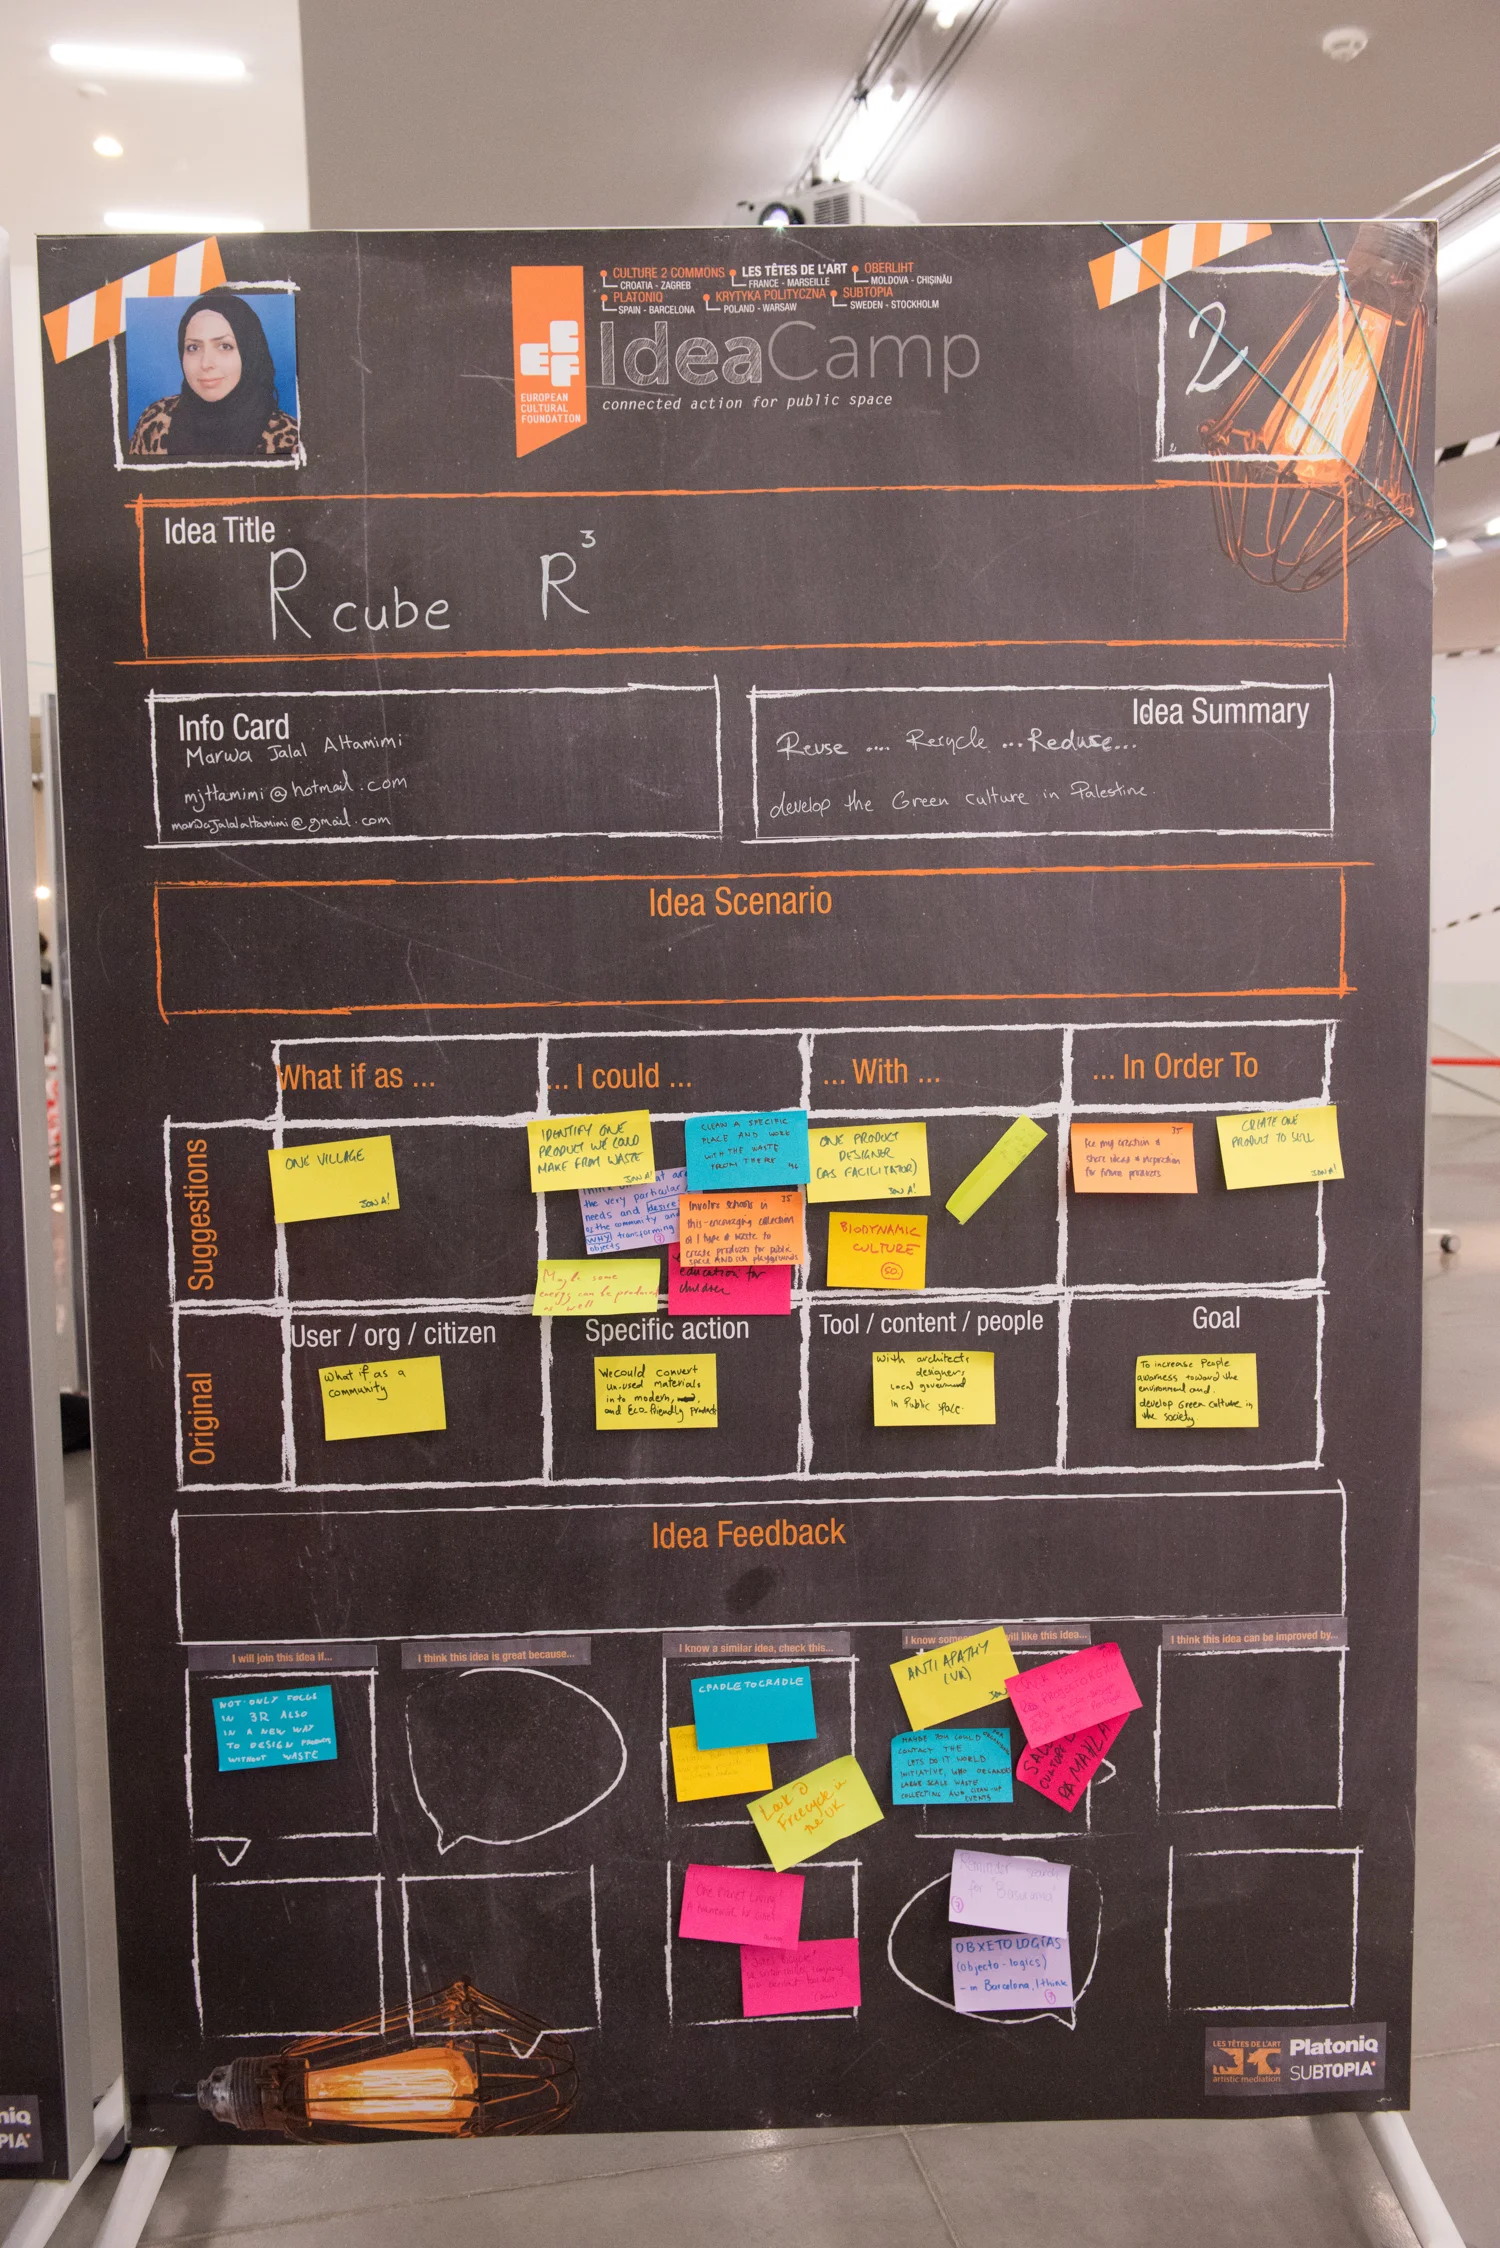 CULTURE 2 COMMONS
CROATIA - ZAGREB
LES TÊTES DE L'ART
FRANCE - MARSEILLE
OBERLIHT
MOLDOVA - CHIȘINĂU
PLATONIQ
SPAIN - BARCELONA
KRYTYKA POLITYCZNA
POLAND - WARSAW
SUBTOPIA
SWEDEN - STOCKHOLM
ECF
EUROPEAN
CULTURAL
FOUNDATION
IdeaCamp
connected action for public space
2
Idea Title
R cube R³
Info Card
Marwa Jalal Altamimi
mjttamimi@hotmail.com
marwajalalaltamimi@gmail.com
Idea Summary
Reuse .... Recycle ... Reduse...
develop the Green culture in Palestine.
Idea Scenario
What if as ...
... I could ...
... With ...
... In Order To
Suggestions
ONE VILLAGE
JON A!
IDENTIFY ONE
PRODUCT WE COULD
MAKE FROM WASTE
JON A!
CLEAN A SPECIFIC
PLACE AND WORK
WITH THE WASTE
FROM THERE
46
the very particular
needs and desire
of the community and
WHY transforming
objects
7
35
Involve schools in
this - encouraging collection
of 1 type of waste to
create products for public
space AND playgrounds
Maybe some
energy can be produced
as well
education for
children
ONE PRODUCT
DESIGNER
(AS FACILITATOR)
JON A!
BIODYNAMIC
CULTURE
50
35
share ideas & inspiration
for future products
CREATE ONE
PRODUCT TO SELL
JON A!
Original
User / org / citizen
What if as a
community
Specific action
We could convert
un-used materials
into modern,
and Eco-friendly products
Tool / content / people
With architects
designers
Local government
in Public space.
Goal
To increase People
awarness toward the
environment and
develop Green culture in
the society
Idea Feedback
I will join this idea if...
I think this idea is great because...
I know a similar idea, check this...
I know will like this idea...
I think this idea can be improved by...
NOT ONLY FOCUS
IN 3R ALSO
IN A NEW WAY
TO DESIGN PRODUCTS
WITHOUT WASTE
CRADLE TO CRADLE
Look @
Freecycle in
the UK
ANTIAPATHY
(UK)
JON
MAYBE YOU COULD
CONTACT THE
LETS DO IT WORLD
INITIATIVE, WHO ORGANIZE
LARGE SCALE WASTE
COLLECTING AND CLEAN OUT
EVENTS
RAMALLA
One Planet Living
Reminder search
for
7
OBXETOLOGÍAS
(objecto-logics)
- in Barcelona, I think
7
LES TÊTES DE L'ART
artistic mediation
Platoniq
SUBTOPIA